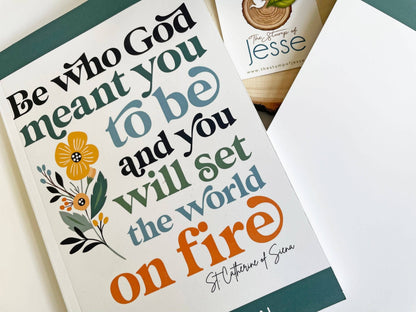 Be who God
meant you
to be
and you
will set
the world
on fire
St Catherine of Siena
The Stump of
Jesse
www.thestumpofjesse